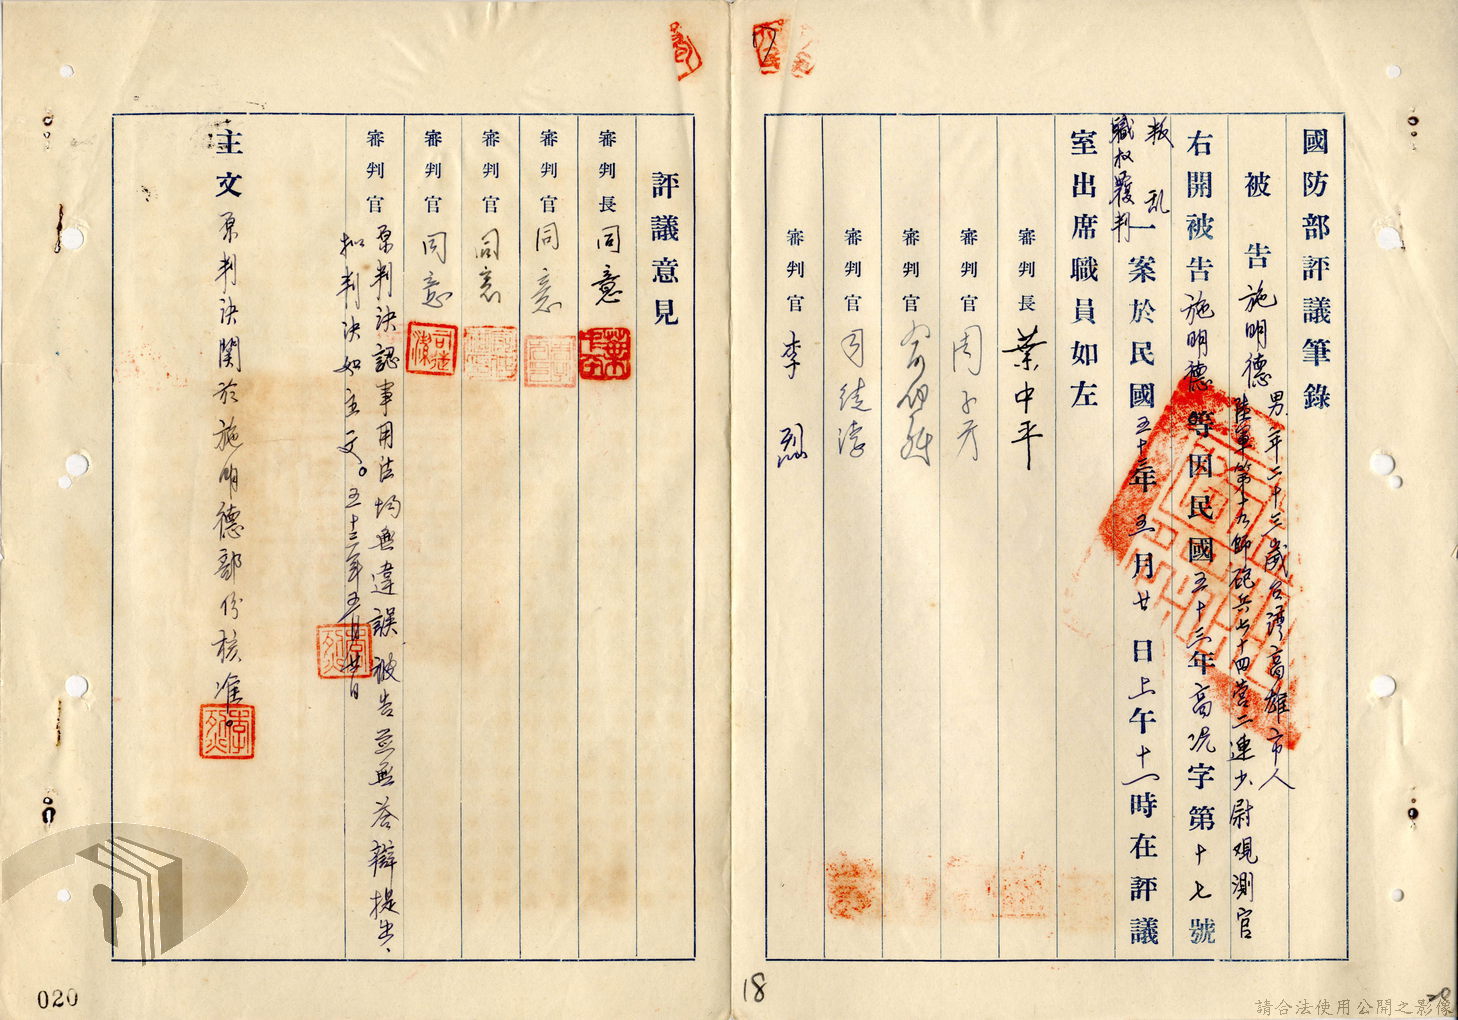 國防部評議筆錄
被告施明德
男年二十三歲台灣高雄市人
陸軍第十九師砲兵七十四營二連少尉觀測官
右開被告施明德等因民國五十三年高沉字第十七號
叛亂
職权覆判
一案於民國五十三年五月廿日上午十一時在評議
室出席職員如左
審判長 葉中平
審判官
審判官
審判官
審判官 李烈
評議意見
審判長 同意
審判官 同意
審判官 同意
審判官 同意
審判官 原判決認事用法均無違誤被告並無答辯提出、
擬判決如主文。五十三年五月廿日
主文 原判決關於施明德部份核准。
020
18
請合法使用公開之影像